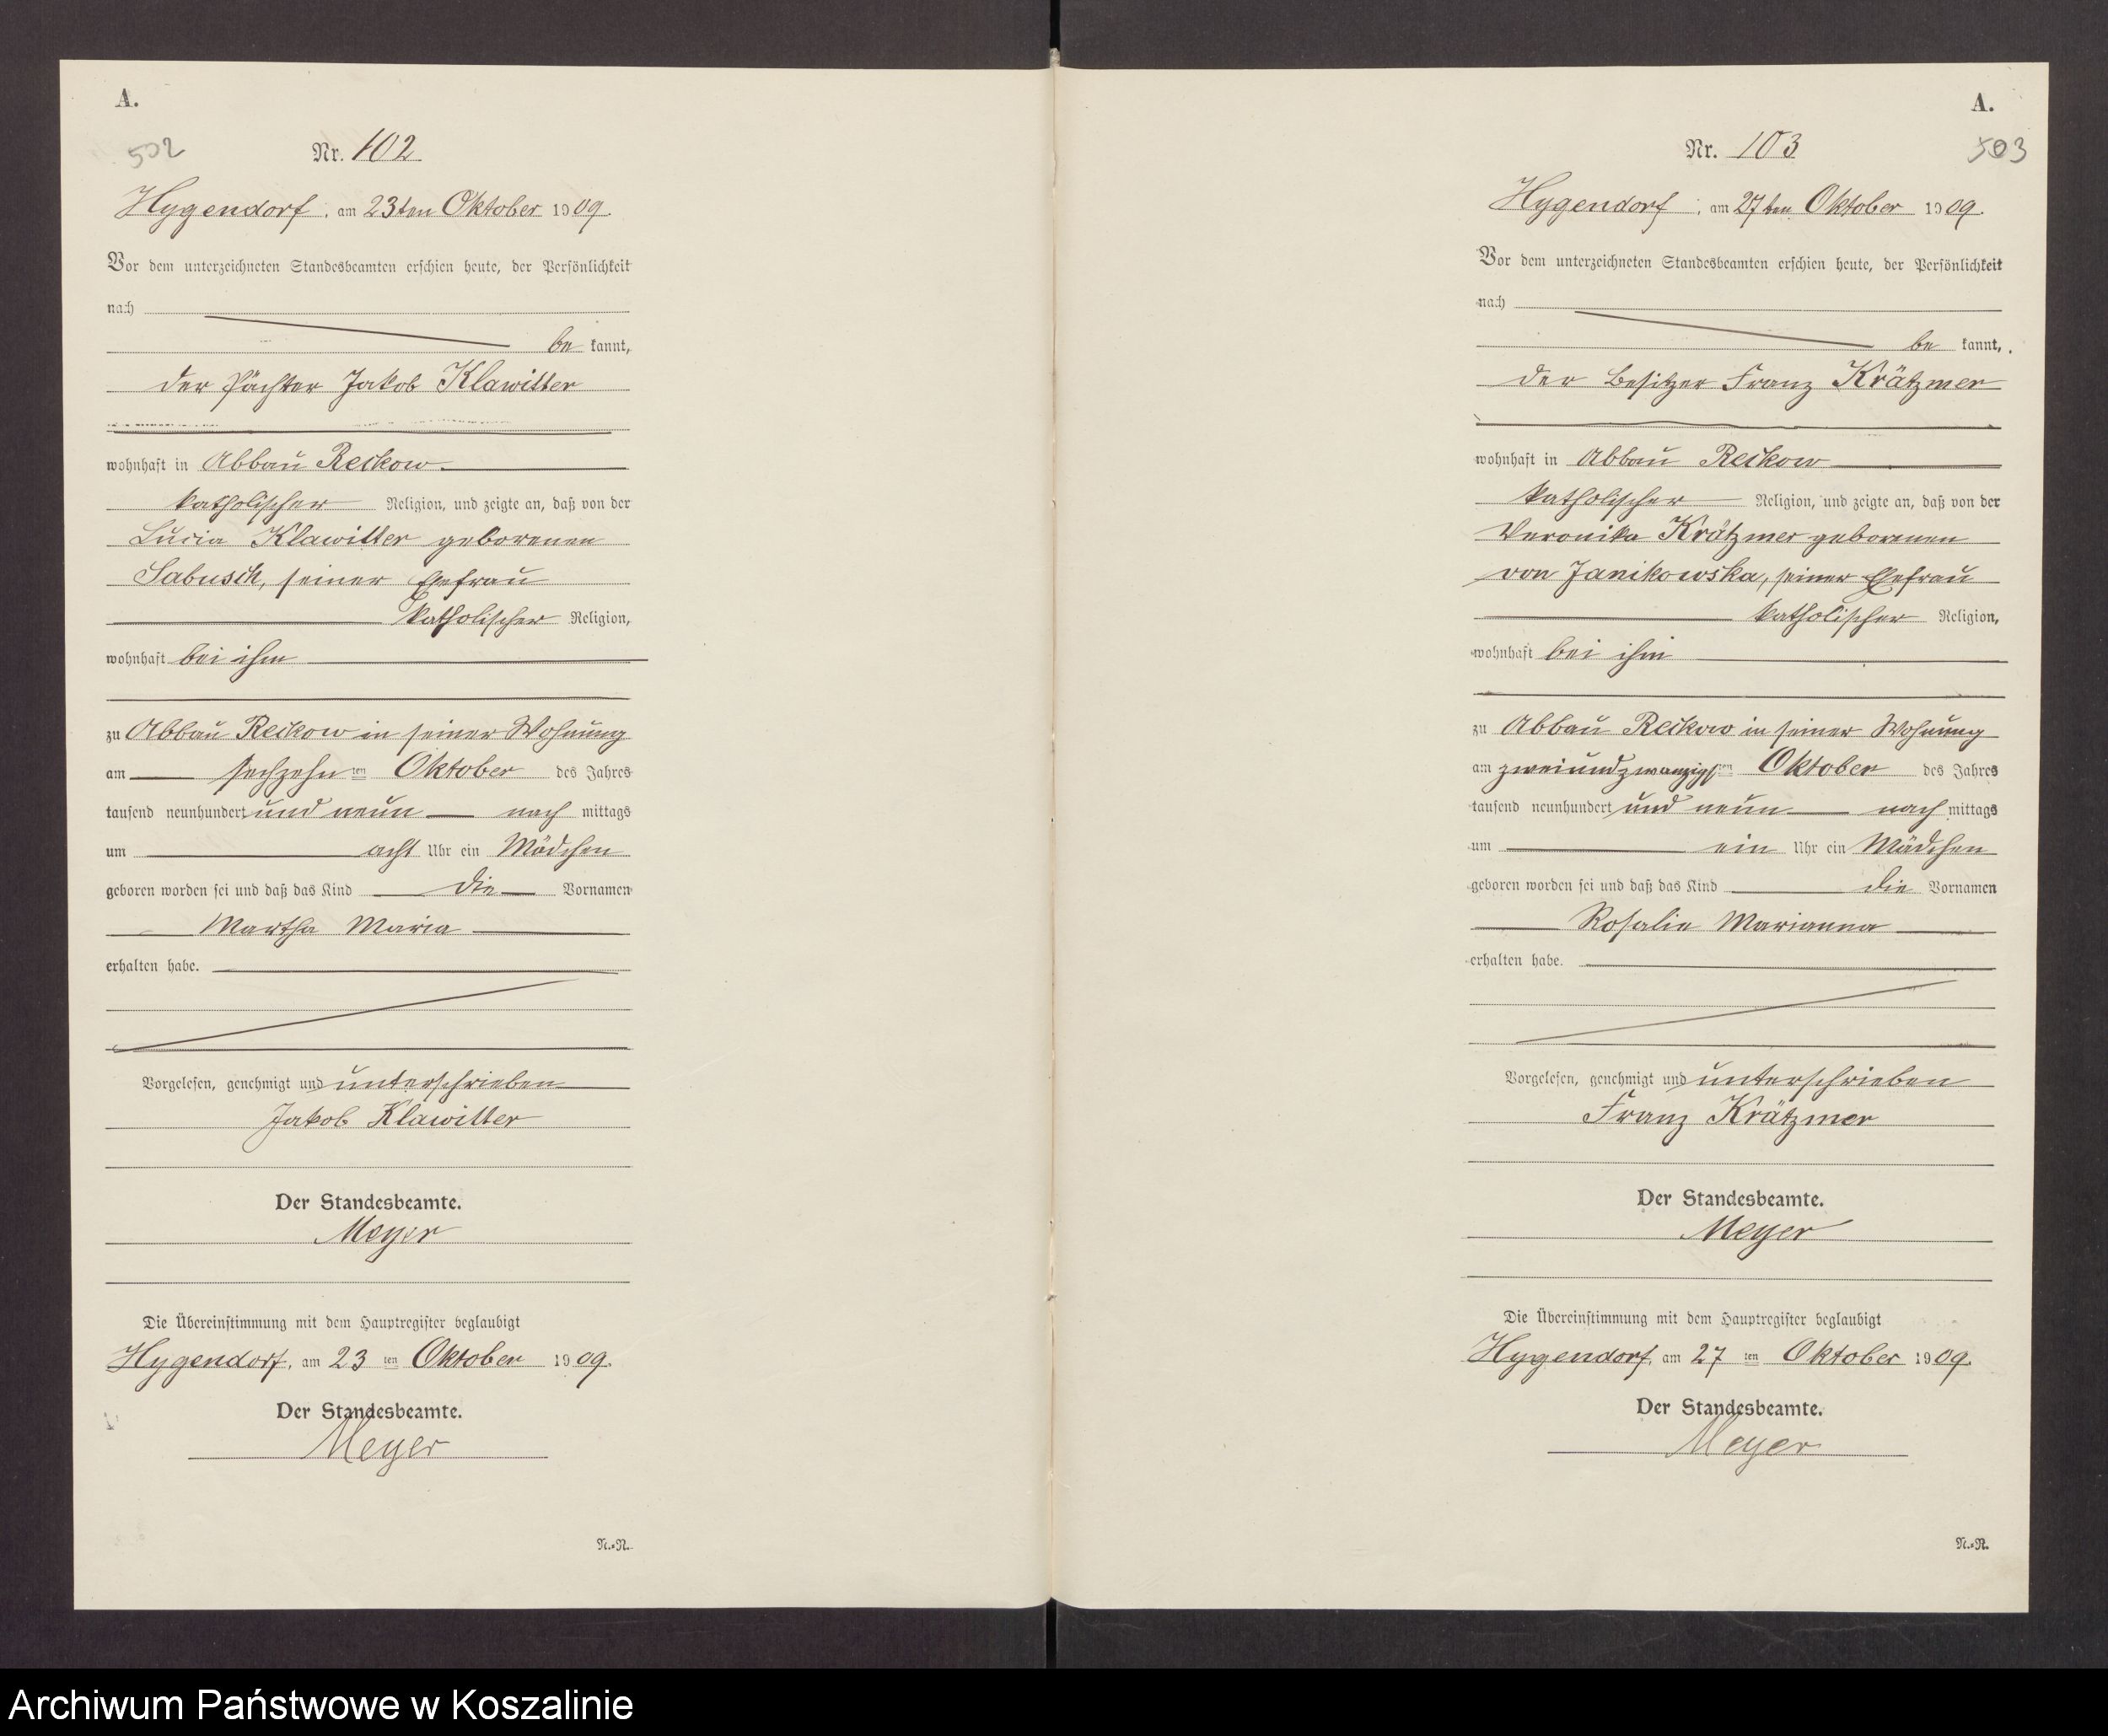 A.
502
Nr. 102
Hygendorf, am 23ten Oktober 1909.
Vor dem unterzeichneten Standesbeamten erschien heute, der Persönlichkeit
nach
be kannt,
der Pächter Jakob Klawitter
wohnhaft in Abbau Reckow
katholischer Religion, und zeigte an, daß von der
Lucia Klawitter geborenen
Sabusch, seiner Ehefrau
katholischer Religion,
wohnhaft bei ihm
zu Abbau Reckow in seiner Wohnung
am sechzehn ten Oktober des Jahres
tausend neunhundert und neun nach mittags
um acht Uhr ein Mädchen
geboren worden sei und daß das Kind die Vornamen
Martha Maria
erhalten habe.
Vorgelesen, genehmigt und unterschrieben
Jakob Klawitter
Der Standesbeamte.
Meyer
Die Übereinstimmung mit dem Hauptregister beglaubigt
Hygendorf, am 23 ten Oktober 1909.
Der Standesbeamte.
Meyer
N.=N.
A.
503
Nr. 103
Hygendorf, am 27ten Oktober 1909.
Vor dem unterzeichneten Standesbeamten erschien heute, der Persönlichkeit
nach
be kannt,
der Besitzer Franz Krätzmer
wohnhaft in Abbau Reckow
katholischer Religion, und zeigte an, daß von der
Veronika Krätzmer geborenen
von Janikowska, seiner Ehefrau
katholischer Religion,
wohnhaft bei ihm
zu Abbau Reckow in seiner Wohnung
am zweiundzwanzigsten Oktober des Jahres
tausend neunhundert und neun nach mittags
um ein Uhr ein Mädchen
geboren worden sei und daß das Kind die Vornamen
Rosalie Marianna
erhalten habe.
Vorgelesen, genehmigt und unterschrieben
Franz Krätzmer
Der Standesbeamte.
Meyer
Die Übereinstimmung mit dem Hauptregister beglaubigt
Hygendorf, am 27 ten Oktober 1909.
Der Standesbeamte.
Meyer
N.=N.
Archiwum Państwowe w Koszalinie